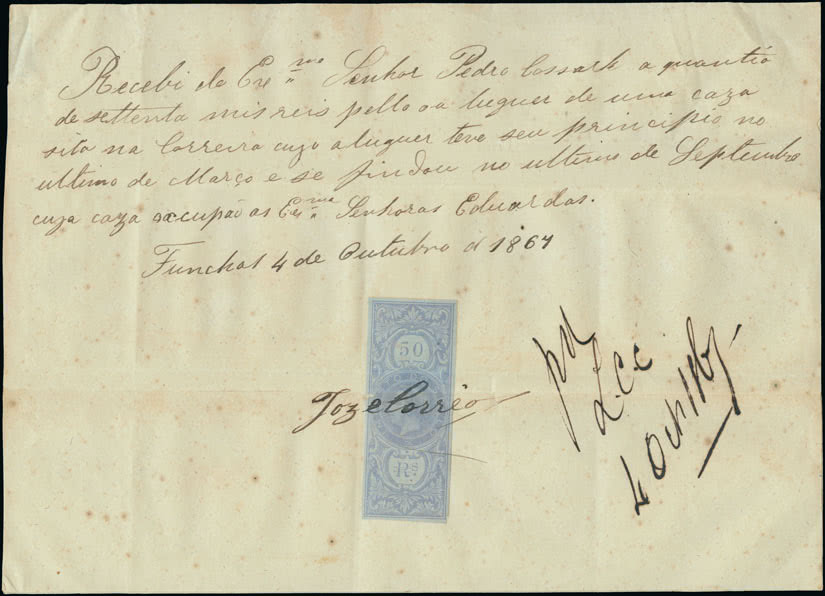 Recebi do Exmo Senhor Pedro Cossark a quantia
de settenta mis reis pello oa luguer de uma caza
sita na Correira cujo aluguer teve seu principio no
ultimo de Março e se findou no ultimo de Septembro
cuja caza occupão as Exmas Senhoras Eduardas.
Funchal 4 de Outubro d 1867
50
Joze Corrêo
Rs
pd
L.C.C
4 Oct/67